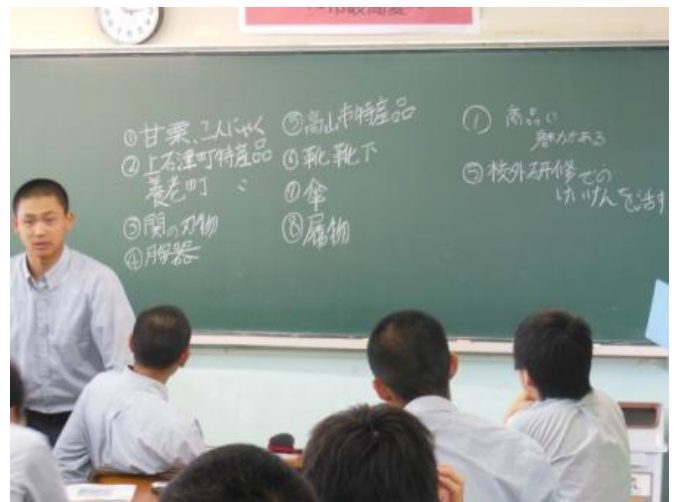 ①甘栗、こんにゃく
②上石津町特産品
養老町 〃
③関の刃物
④陶器
⑤高山市特産品
⑥靴、靴下
⑦傘
⑧履物
① 商品に
魅力がある
⑤校外研修での
けいけんを活す